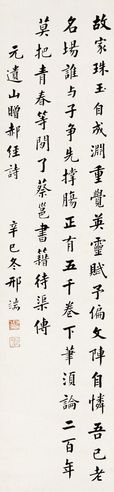 故家珠玉自成淵重覺英靈賦予偏文陣自憐吾已老
名場誰与子爭先撐腸正有五千卷下筆須論二百年
莫把青春等閒了蔡邕書籍待渠傳
元遺山贈郝經詩
辛巳冬邢端